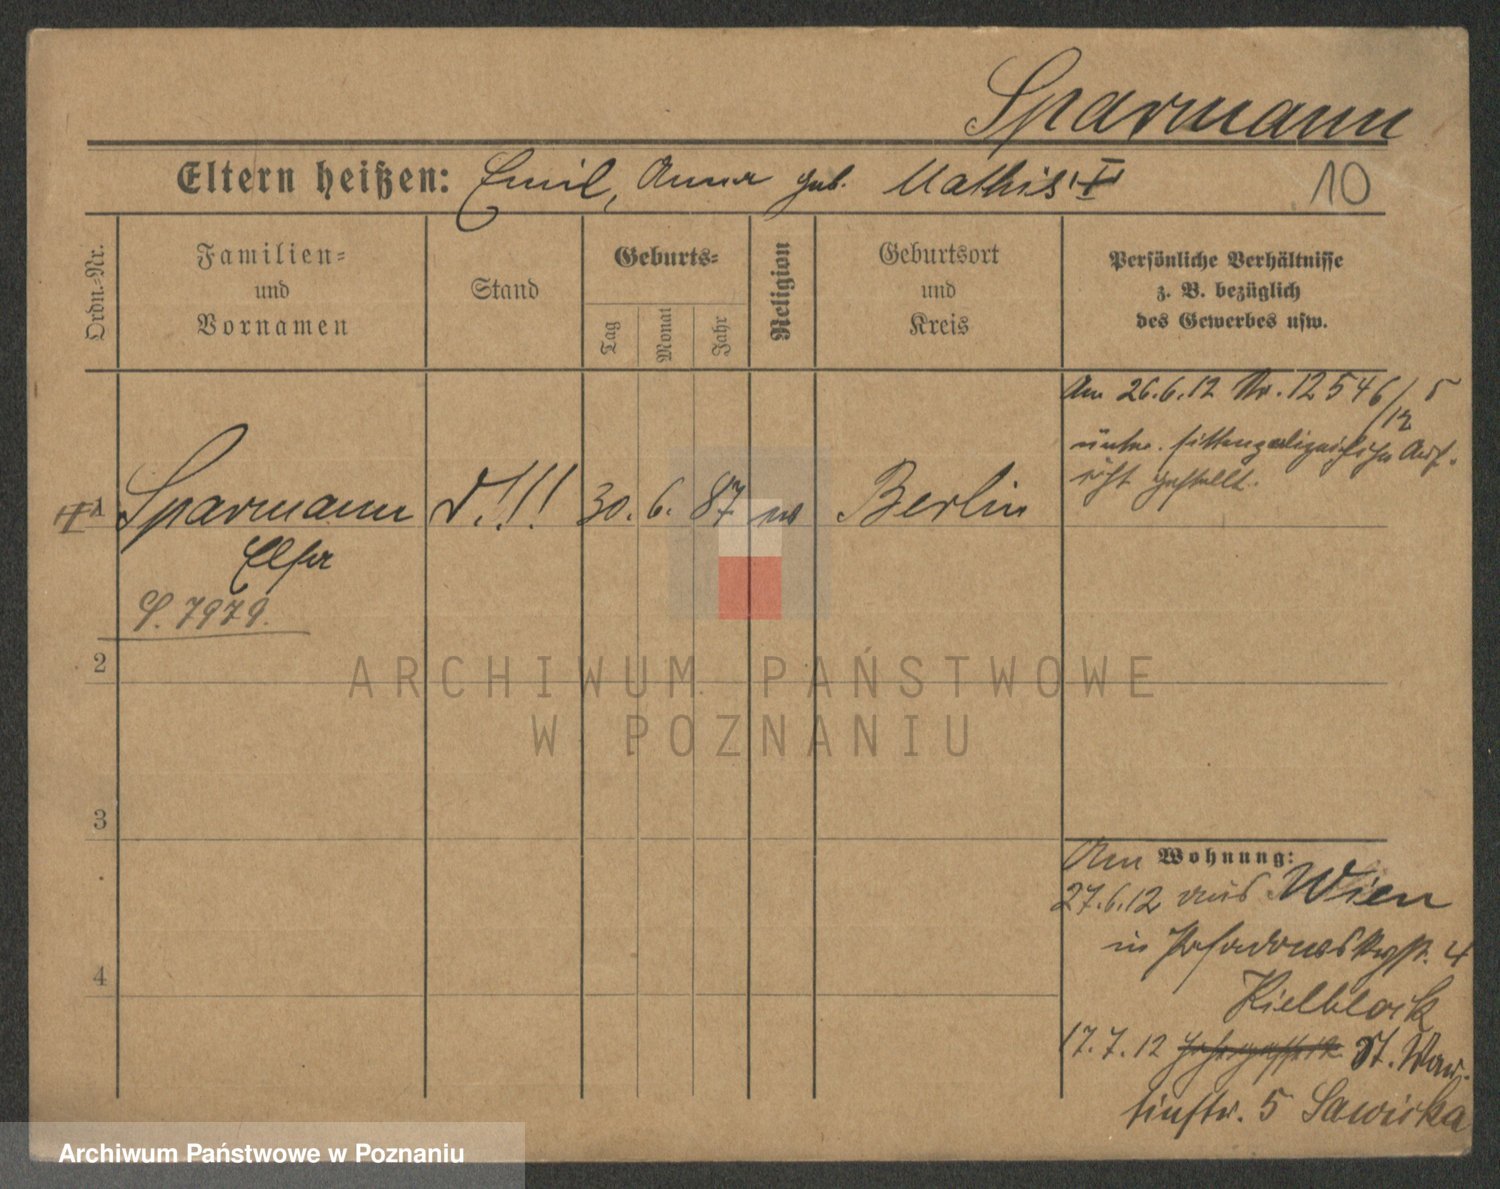 Sparmann
Eltern heißen: Emil, Anna geb. Mathis
10
Ordn.-Nr.
Familien-
und
Vornamen
Stand
Geburts-
Tag
Monat
Jahr
Religion
Geburtsort
und
Kreis
Persönliche Verhältnisse
z. B. bezüglich
des Gewerbes usw.
Am 26.6.12 Nr. 12546/5
12
unter sittenpolizeiliche Auf-
sicht gestellt.
1 Sparmann 30. 6. 87 ev Berlin
Elsa
S. 7979.
2
ARCHIWUM PAŃSTWOWE
W POZNANIU
3
4
Am Wohnung:
27.6.12 aus Wien
in 4
Kielblock
17.7.12 St. Mar-
tinstr. 5 Sawicka
Archiwum Państwowe w Poznaniu